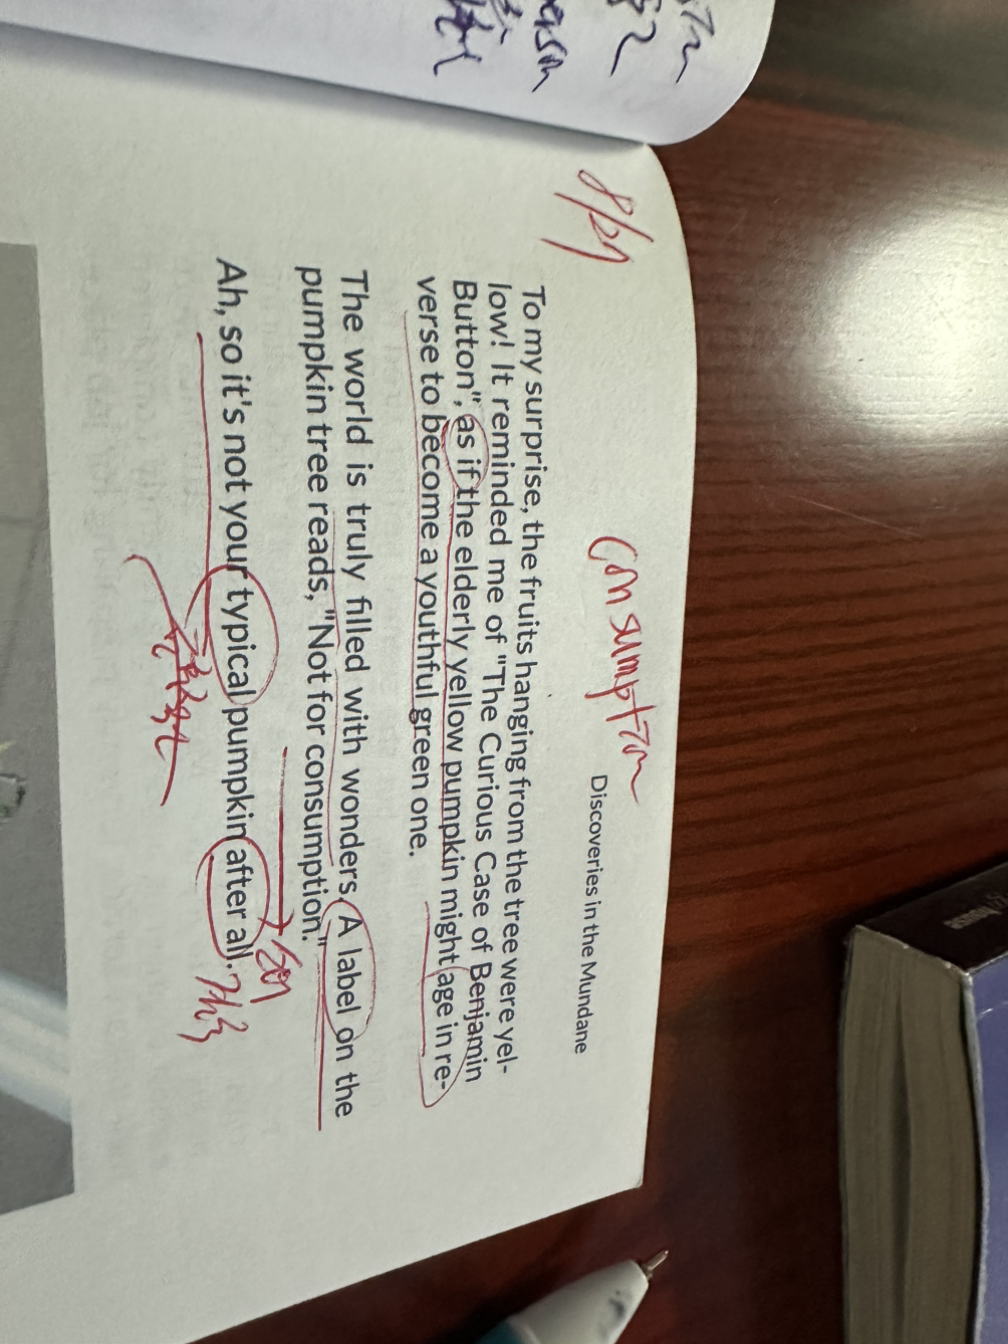 Discoveries in the Mundane
consumption
To my surprise, the fruits hanging from the tree were yel-
low! It reminded me of "The Curious Case of Benjamin
Button", as if the elderly yellow pumpkin might age in re-
verse to become a youthful green one.
The world is truly filled with wonders. A label on the
pumpkin tree reads, "Not for consumption."
Ah, so it's not your typical pumpkin after all.